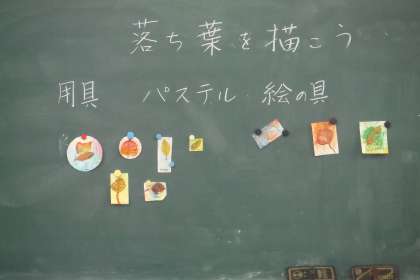 落ち葉を描こう
用具 パステル 絵の具